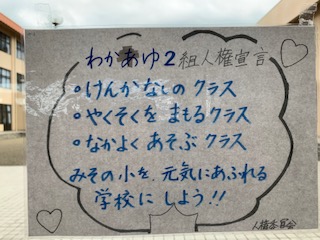 わかあゆ2組人権宣言
○けんかなしのクラス
○やくそくを まもるクラス
○なかよく あそぶ クラス
みその小を、元気にあふれる
学校に しよう!!
人権委員会